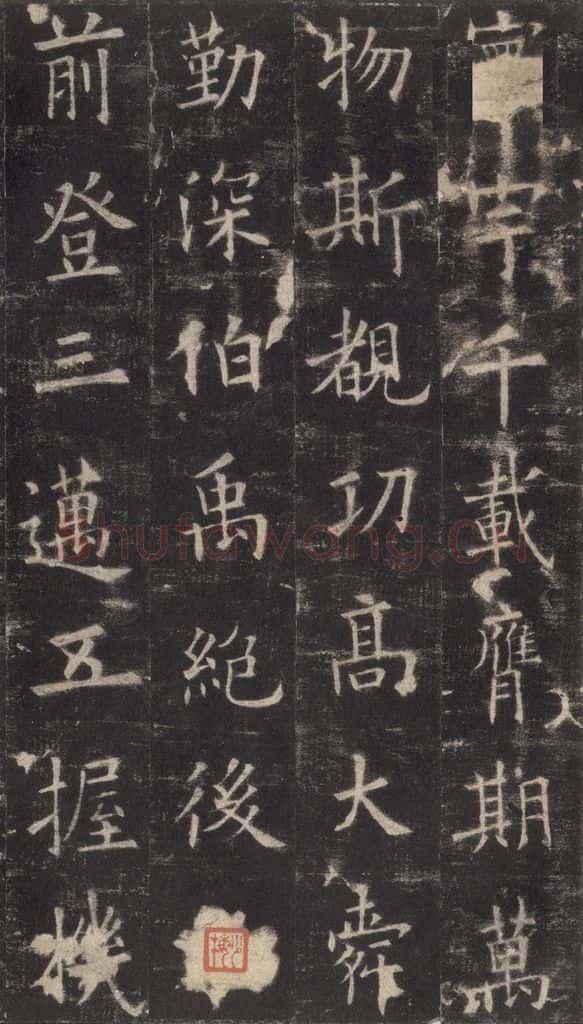 宇千載膺期萬
物斯覩功高大舜
勤深伯禹絶後
前登三邁五握機
shufawang.cn